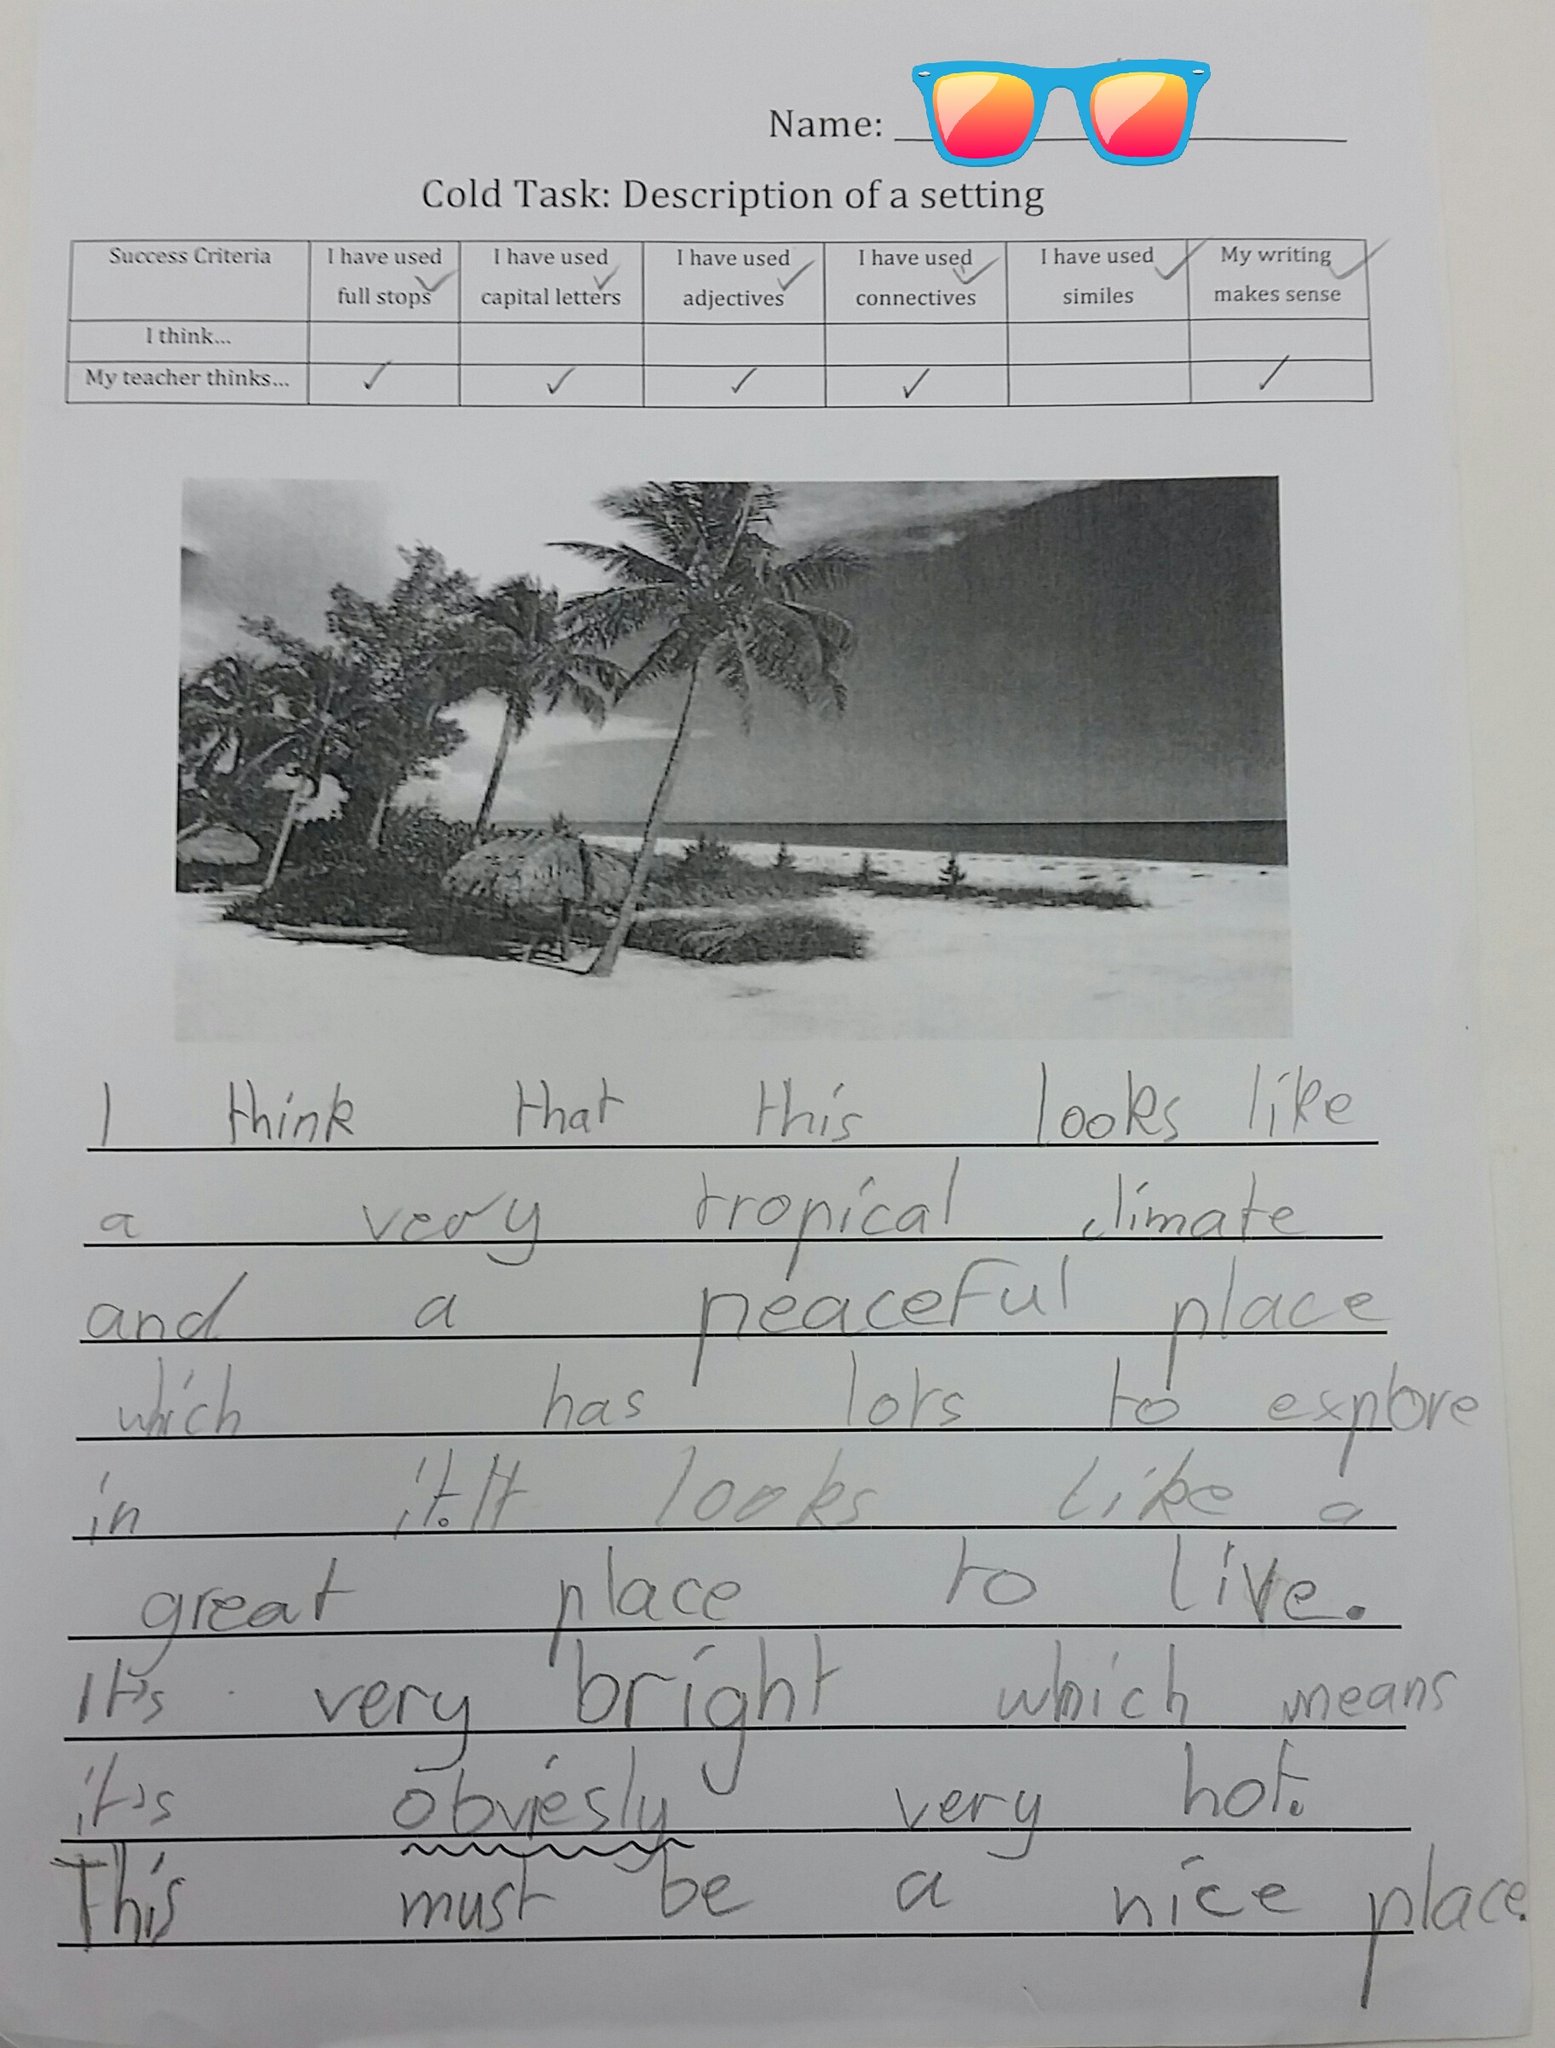 Name:
Cold Task: Description of a setting
Success Criteria
I have used full stops
I have used capital letters
I have used adjectives
I have used connectives
I have used similes
My writing makes sense
I think...
My teacher thinks...
I think that this looks like
a very tropical climate
and a peaceful place
which has lots to explore
in it.It looks like a
great place to live.
It's very bright which means
it's obviesly very hot.
This must be a nice place.